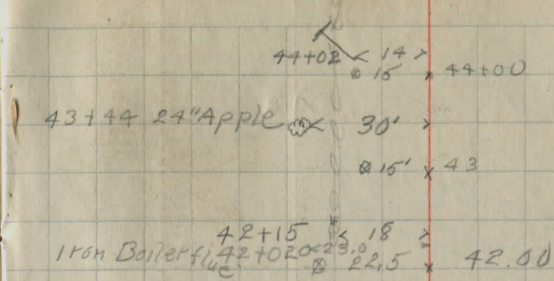 44+02 < 14 >
15 × 44+00
43+44 24" Apple < 30' >
15' × 43
42+15 < 18 >
Iron Boilerflue 42+020<23.0
22.5 × 42.00